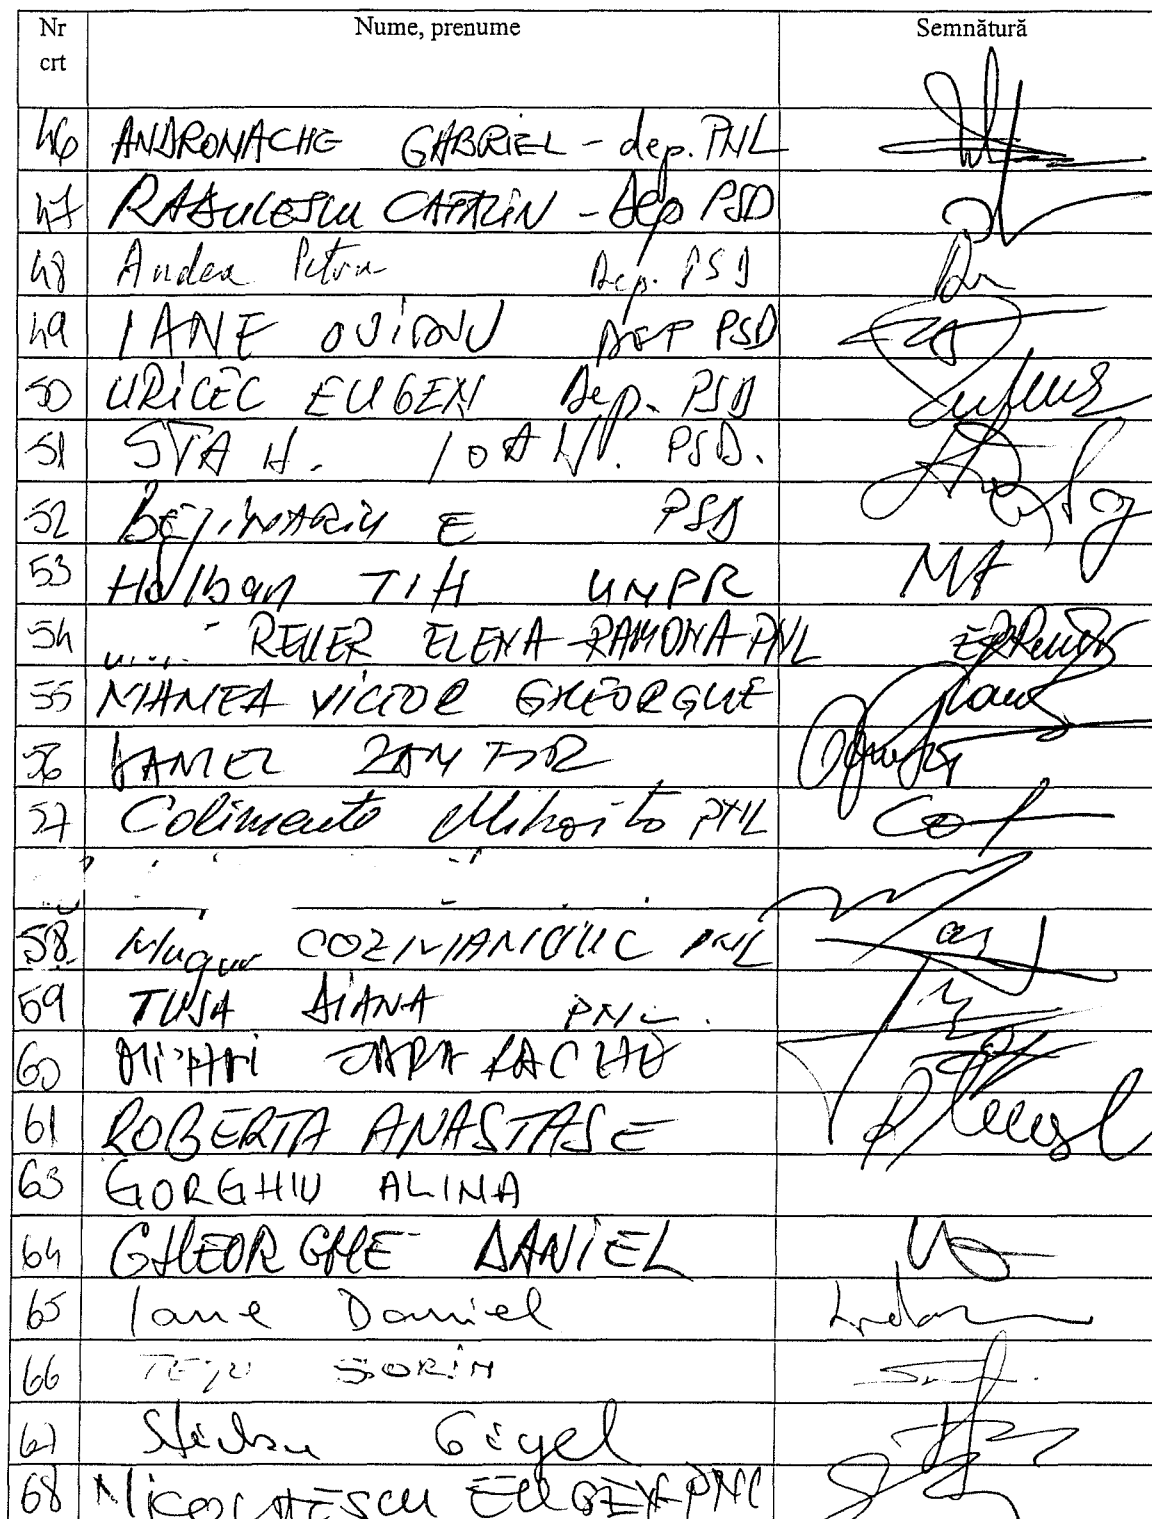 Nr crt Nume, prenume Semnătură
46 ANDRONACHE GABRIEL - dep. PNL
47 RADULESCU CATALIN - Dep PSD
48 Andea Petru Dep. PSD
49 IANE OVIDIU DEP PSD
50 URICEC EUGEN Dep. PSD
51 STAN. IOAN. PSD.
52 BEJINARIU E PSD
53 Holban TITI UNPR
54 REUER ELENA-RAMONA-PNL
55 MANEA VICTOR GHEORGHE
56 DANIEL ZAMFIR
57 Colimente Mihaita PNL
58. Mugur COZMANCIUC PNL
59 TUSA DIANA PNL.
60 
61 ROBERTA ANASTASE
63 GORGHIU ALINA
64 GHEORGHE DANIEL
65 Iane Daniel
66 TEJU SORIN
67 Stirbu Gigel
68 NICOLAESCU EUGEN PNL